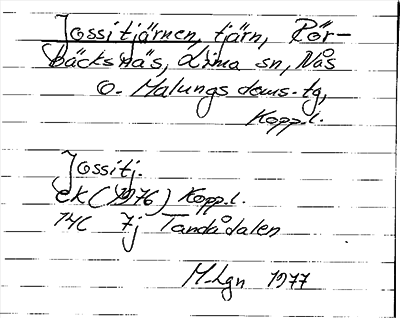 Jossitjärnen, tjärn, Rör-
bäcksnäs, Lima sn, Nås
o. Malungs doms.tg,
Kopp.l.
Jossitj.
ek (1976) Kopp.l.
14C 7j Tandådalen
M-Lgn 1977